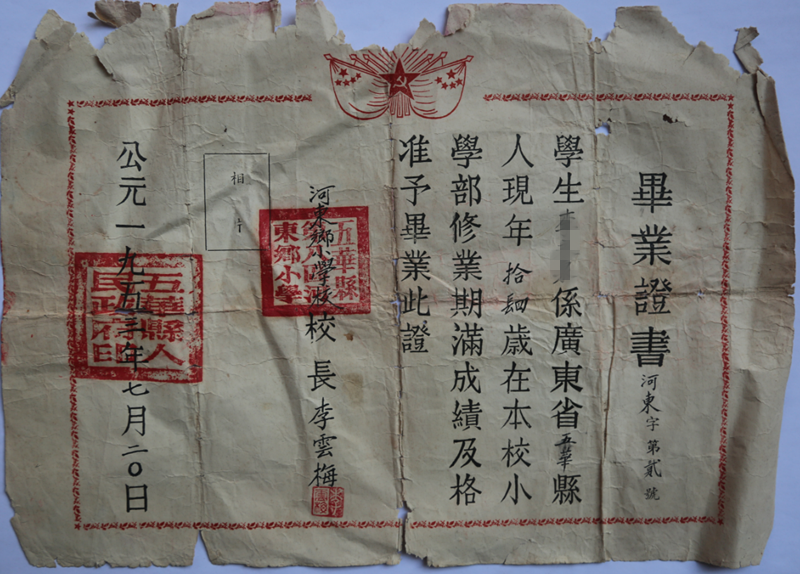 畢業證書
河東字第貳號
學生係廣東省五華縣
人現年拾肆歲在本校小
學部修業期滿成績及格
准予畢業此證
河東鄉小學校校長李雲梅
五華縣
區河
東鄉小學
相片
公元一九五三年七月二〇日
五華縣人
民政府印